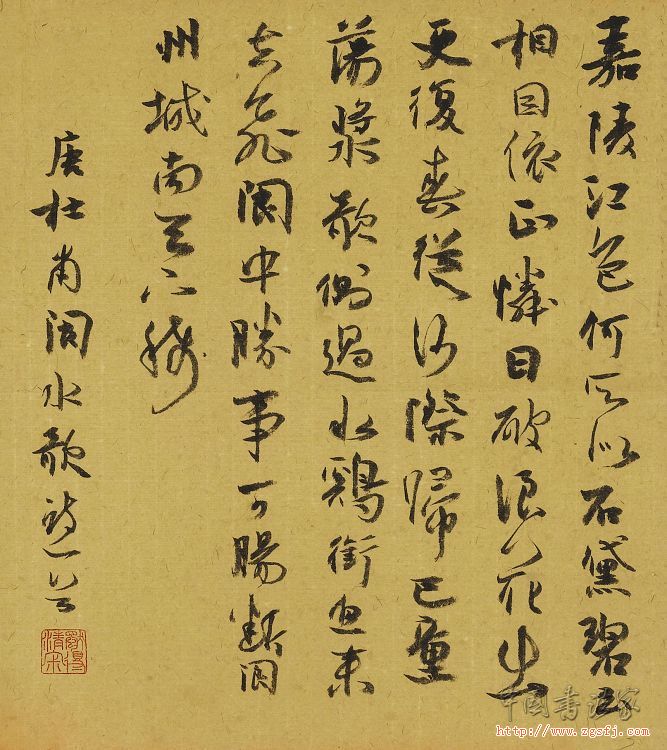 嘉陵江色何所似石黛碧玉
相因依正憐日破浪花出
更復春從沙際歸巴童
蕩槳欹側過水鷄銜魚來
去飛閬中勝事可腸斷閬
州城南天下稀
唐杜甫閬水歌
中国书法家
http://www.zgsfj.com